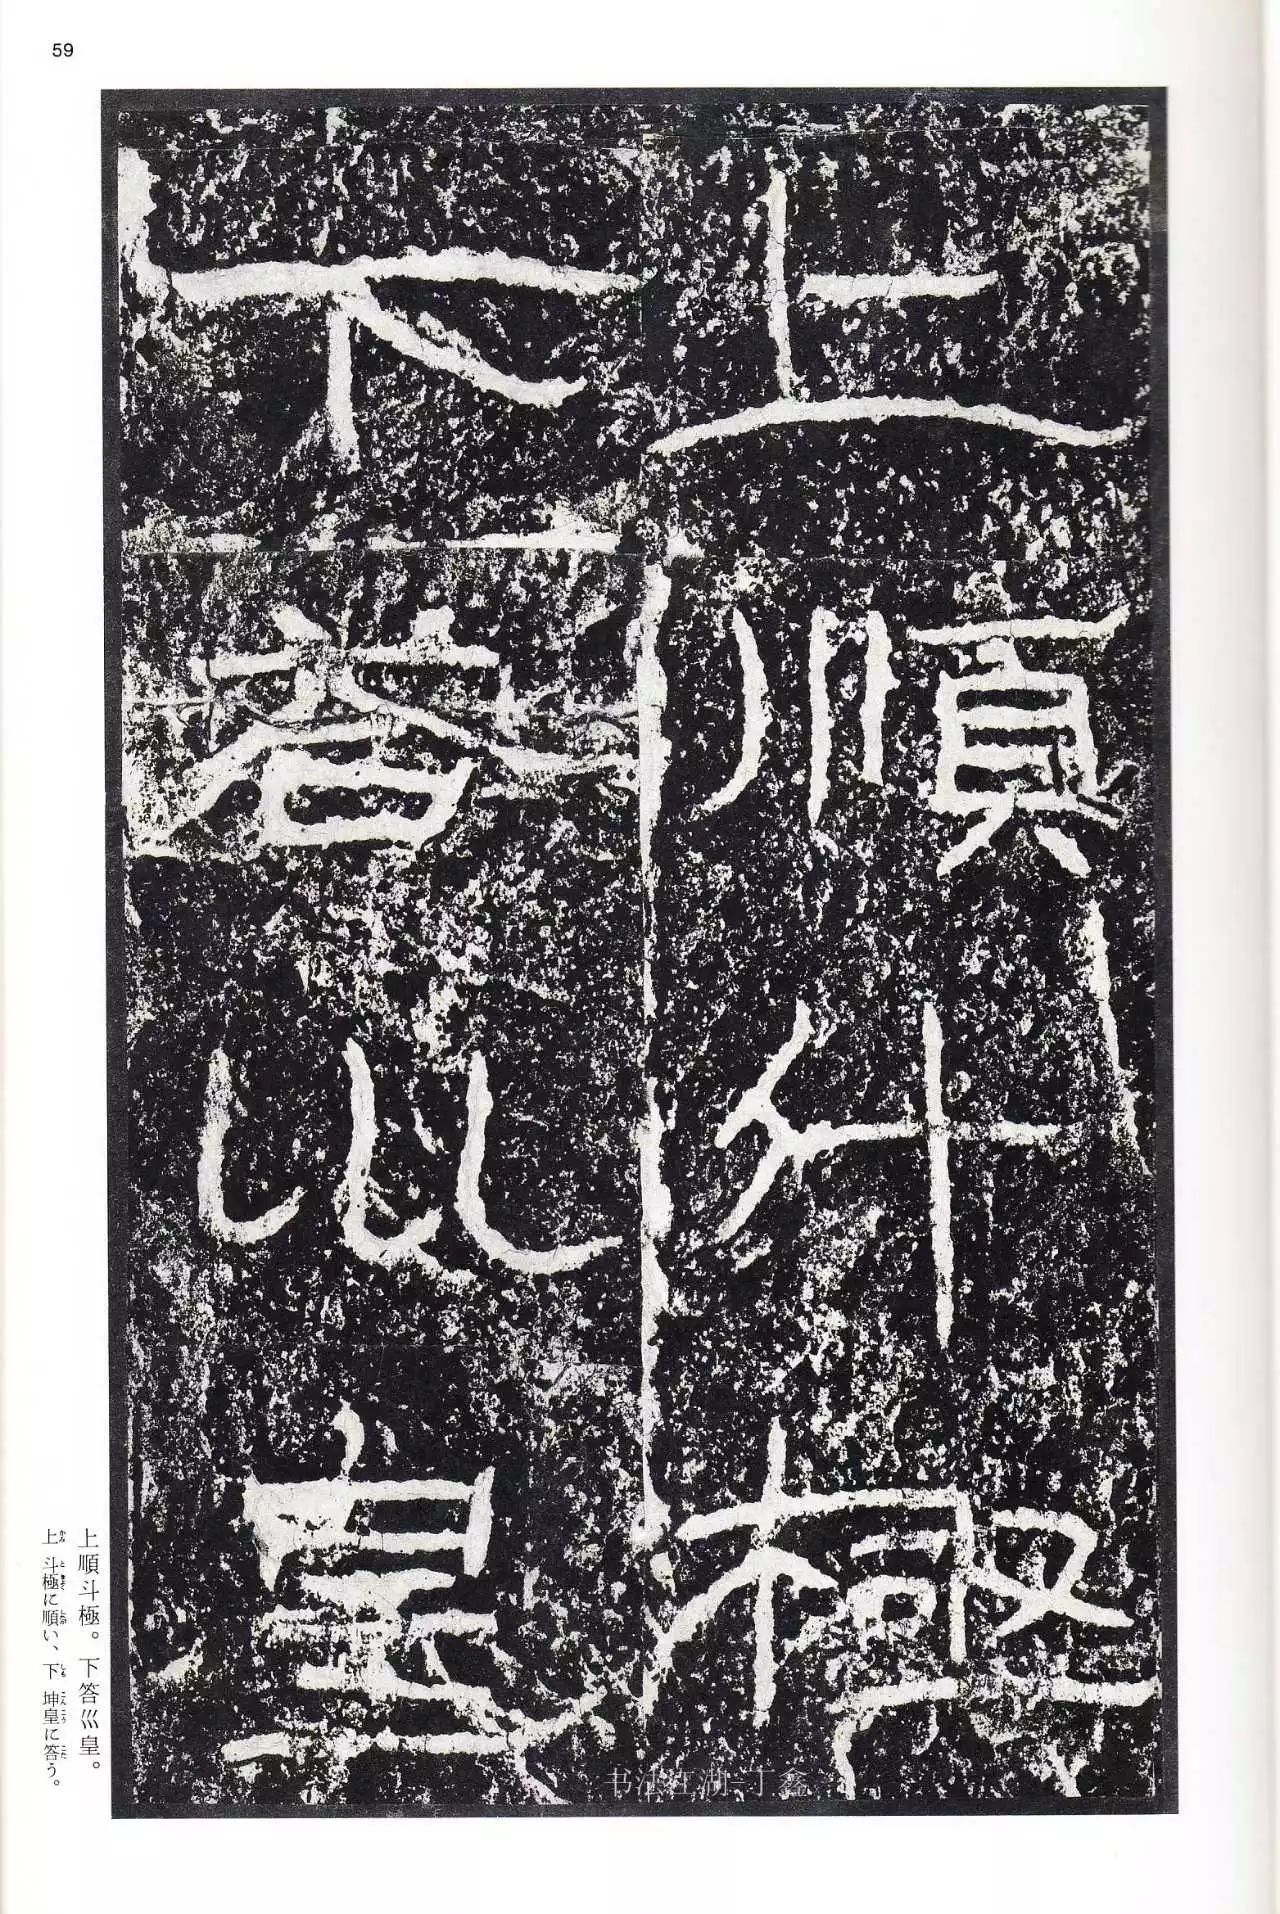 59
上順斗極
下答巛皇
上順斗極。下答巛皇。
上斗極に順い、下坤皇に答う。
书法江湖-丁鑫